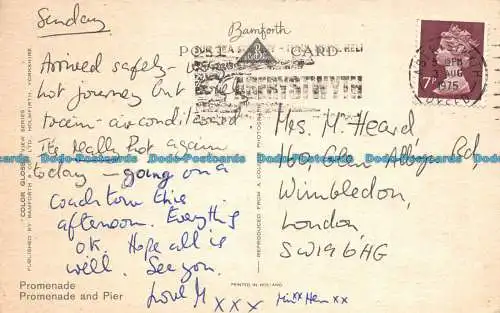 Sunday
Bamforth
POST CARD
ABERYSTWYTH
3 AUG
1975
7P
Arrived safely -
hot journey but
train - air conditioned
Its really hot again
today - going on a
coach town this
afternoon. Everything
ok. Hope all is
well. See you.
Love M xxx
Mrs. M. Heard
Rd,
Wimbledon,
London,
SW19 6HG
xx xx
"COLOR GLOSS" VIEW SERIES
PUBLISHED BY BAMFORTH & CO. LTD., HOLMFIRTH, YORKSHIRE
REPRODUCED FROM A COLOUR PHOTOGRAPH
PRINTED IN HOLLAND
Promenade
Promenade and Pier
Dodo-Postcards Dodo-Postcards Dodo-Postcards Dodo-Postcards